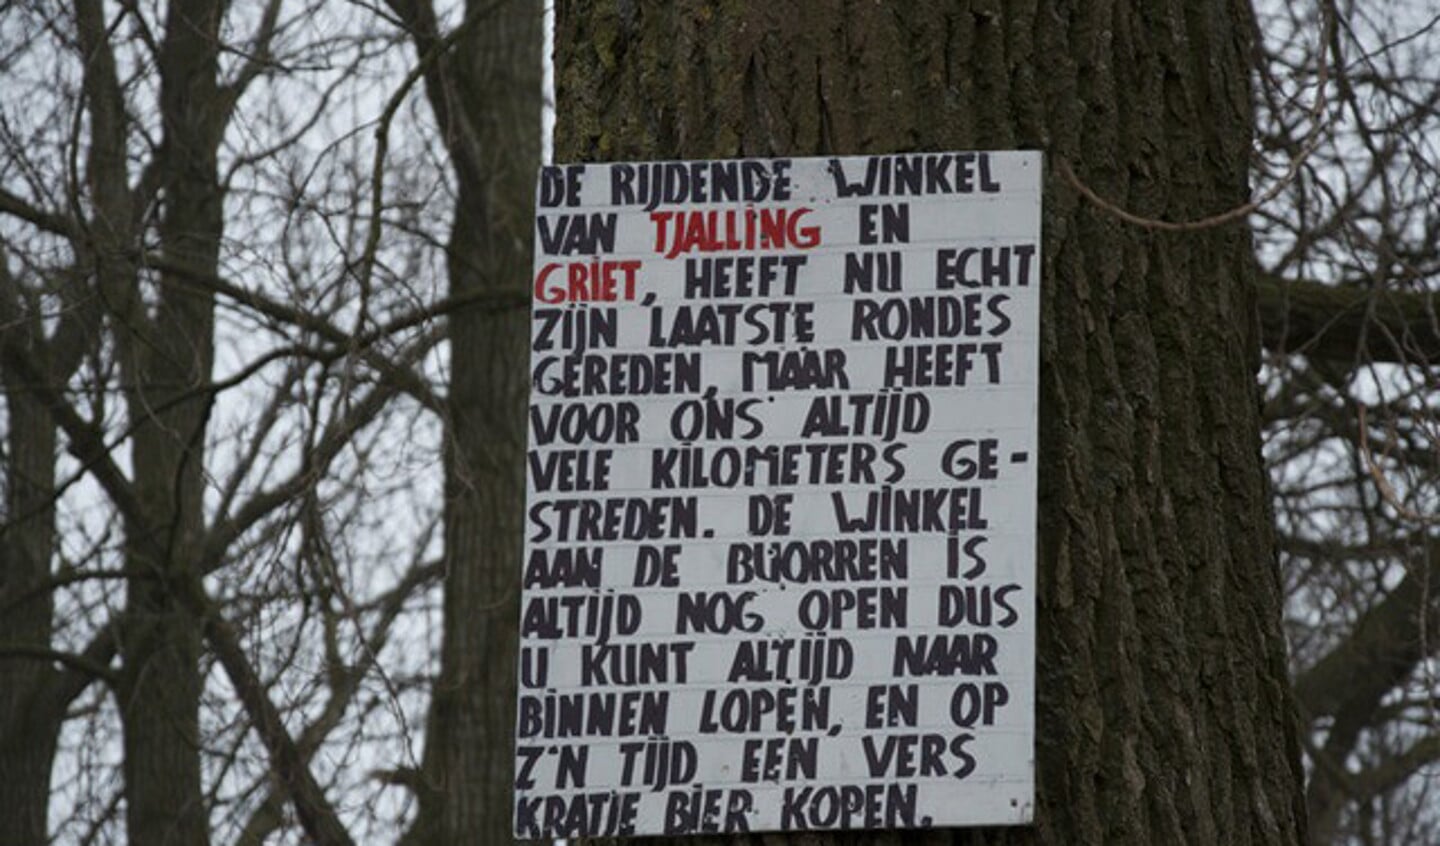 DE RIJDENDE WINKEL
VAN TJALLING EN
GRIET, HEEFT NU ECHT
ZIJN LAATSTE RONDES
GEREDEN, MAAR HEEFT
VOOR ONS ALTIJD
VELE KILOMETERS GE-
STREDEN. DE WINKEL
AAN DE BUORREN IS
ALTIJD NOG OPEN DUS
U KUNT ALTIJD NAAR
BINNEN LOPEN, EN OP
Z'N TIJD EEN VERS
KRATJE BIER KOPEN.